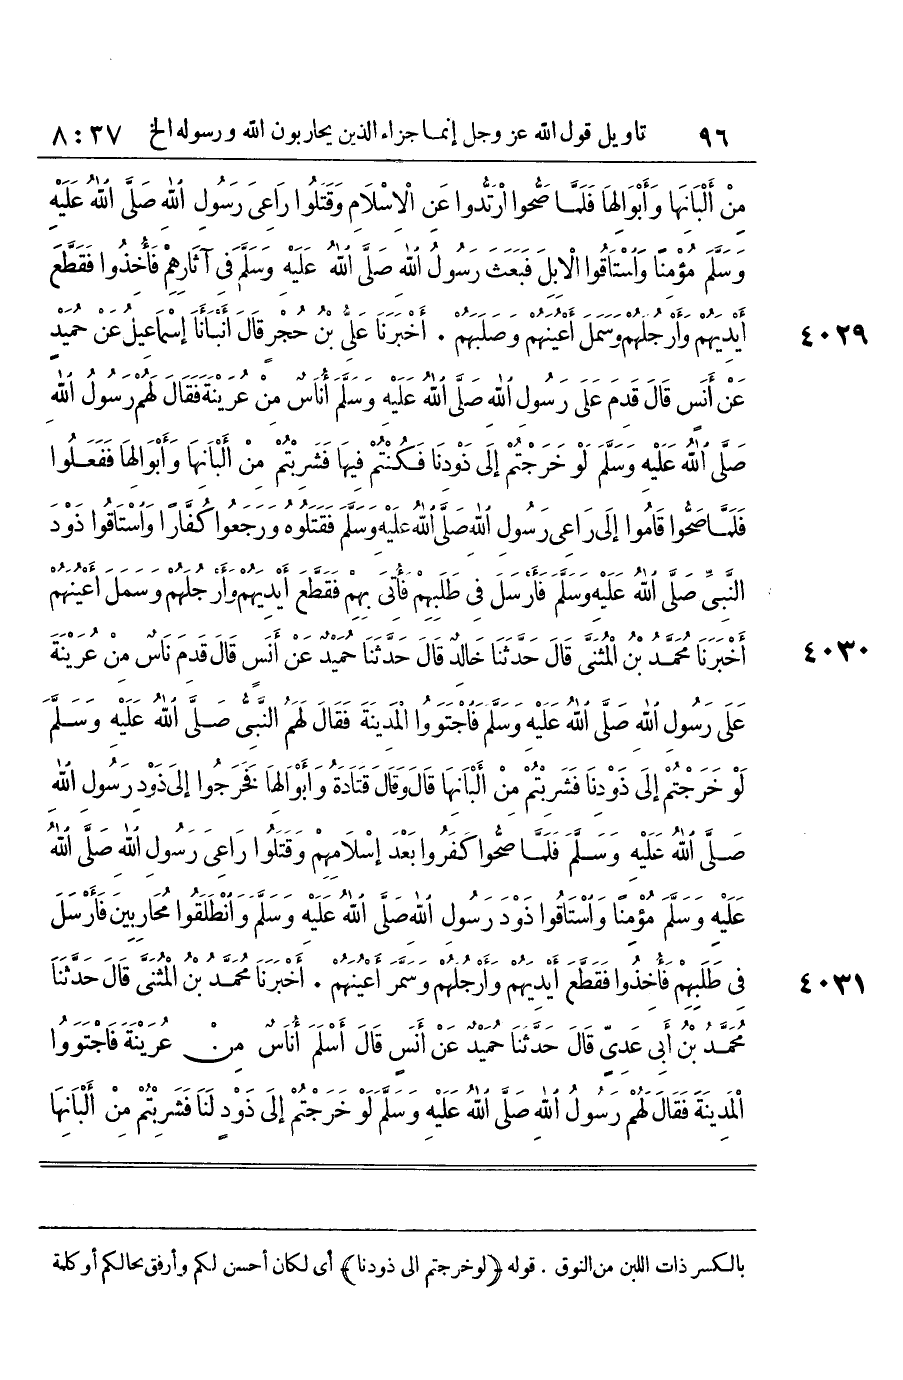 ٩٦ تاويل قول الله عز وجل إنما جزاء الذين يحاربون الله ورسوله الخ ٣٧ : ٨
مِنْ أَلْبَانِهَا وَأَبْوَالِهَا فَلَمَّا صَحُّوا ارْتَدُّوا عَنِ الْاِسْلَامِ وَقَتَلُوا رَاعِيَ رَسُولِ اللهِ صَلَّى اللهُ عَلَيْهِ
وَسَلَّمَ مُؤْمِنًا وَاسْتَاقُوا الْاِبِلَ فَبَعَثَ رَسُولُ اللهِ صَلَّى اللهُ عَلَيْهِ وَسَلَّمَ فِي آثَارِهِمْ فَأُخِذُوا فَقَطَّعَ
أَيْدِيَهُمْ وَأَرْجُلَهُمْ وَسَمَلَ أَعْيُنَهُمْ وَصَلَبَهُمْ . أَخْبَرَنَا عَلِيُّ بْنُ حُجْرٍ قَالَ أَنْبَأَنَا إِسْمَاعِيلُ عَنْ حُمَيْدٍ ٤٠٢٩
عَنْ أَنَسٍ قَالَ قَدِمَ عَلَى رَسُولِ اللهِ صَلَّى اللهُ عَلَيْهِ وَسَلَّمَ أُنَاسٌ مِنْ عُرَيْنَةَ فَقَالَ لَهُمْ رَسُولُ اللهِ
صَلَّى اللهُ عَلَيْهِ وَسَلَّمَ لَوْ خَرَجْتُمْ إِلَى ذَوْدِنَا فَكُنْتُمْ فِيهَا فَشَرِبْتُمْ مِنْ أَلْبَانِهَا وَأَبْوَالِهَا فَفَعَلُوا
فَلَمَّا صَحُّوا قَامُوا إِلَى رَاعِي رَسُولِ اللهِ صَلَّى اللهُ عَلَيْهِ وَسَلَّمَ فَقَتَلُوهُ وَرَجَعُوا كُفَّارًا وَاسْتَاقُوا ذَوْدَ
النَّبِيِّ صَلَّى اللهُ عَلَيْهِ وَسَلَّمَ فَأَرْسَلَ فِي طَلَبِهِمْ فَأُتِيَ بِهِمْ فَقَطَّعَ أَيْدِيَهُمْ وَأَرْجُلَهُمْ وَسَمَلَ أَعْيُنَهُمْ
أَخْبَرَنَا مُحَمَّدُ بْنُ الْمُثَنَّى قَالَ حَدَّثَنَا خَالِدٌ قَالَ حَدَّثَنَا حُمَيْدٌ عَنْ أَنَسٍ قَالَ قَدِمَ نَاسٌ مِنْ عُرَيْنَةَ ٤٠٣٠
عَلَى رَسُولِ اللهِ صَلَّى اللهُ عَلَيْهِ وَسَلَّمَ فَاجْتَوَوُا الْمَدِينَةَ فَقَالَ لَهُمُ النَّبِيُّ صَلَّى اللهُ عَلَيْهِ وَسَلَّمَ
لَوْ خَرَجْتُمْ إِلَى ذَوْدِنَا فَشَرِبْتُمْ مِنْ أَلْبَانِهَا قَالَ وَقَالَ قَتَادَةُ وَأَبْوَالِهَا فَخَرَجُوا إِلَى ذَوْدِ رَسُولِ اللهِ
صَلَّى اللهُ عَلَيْهِ وَسَلَّمَ فَلَمَّا صَحُّوا كَفَرُوا بَعْدَ إِسْلَامِهِمْ وَقَتَلُوا رَاعِيَ رَسُولِ اللهِ صَلَّى اللهُ
عَلَيْهِ وَسَلَّمَ مُؤْمِنًا وَاسْتَاقُوا ذَوْدَ رَسُولِ اللهِ صَلَّى اللهُ عَلَيْهِ وَسَلَّمَ وَانْطَلَقُوا مُحَارِبِينَ فَأَرْسَلَ
فِي طَلَبِهِمْ فَأُخِذُوا فَقَطَّعَ أَيْدِيَهُمْ وَأَرْجُلَهُمْ وَسَمَرَ أَعْيُنَهُمْ . أَخْبَرَنَا مُحَمَّدُ بْنُ الْمُثَنَّى قَالَ حَدَّثَنَا ٤٠٣١
مُحَمَّدُ بْنُ أَبِي عَدِيٍّ قَالَ حَدَّثَنَا حُمَيْدٌ عَنْ أَنَسٍ قَالَ أَسْلَمَ أُنَاسٌ مِنْ عُرَيْنَةَ فَاجْتَوَوُا
الْمَدِينَةَ فَقَالَ لَهُمْ رَسُولُ اللهِ صَلَّى اللهُ عَلَيْهِ وَسَلَّمَ لَوْ خَرَجْتُمْ إِلَى ذَوْدٍ لَنَا فَشَرِبْتُمْ مِنْ أَلْبَانِهَا
بالكسر ذات اللبن من النوق . قوله ﴿لو خرجتم الى ذودنا﴾ أى لكان أحسن لكم وأرفق بحالكم أو كلمة